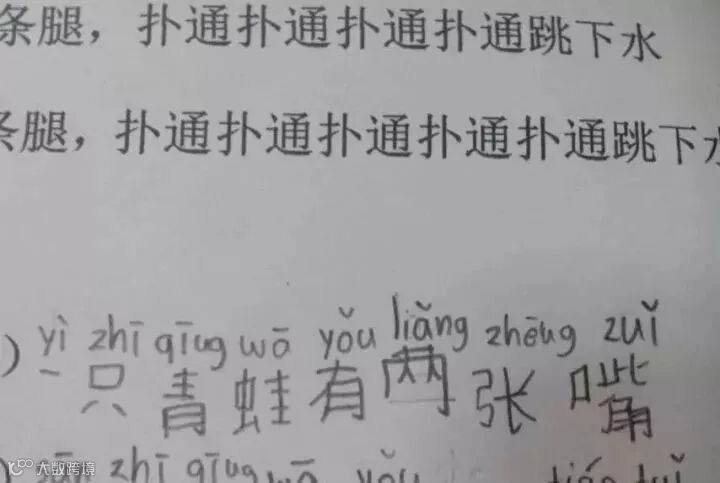 条腿，扑通扑通扑通扑通跳下水
条腿，扑通扑通扑通扑通扑通跳下水
) yì zhī qīng wā yǒu liǎng zhēng zuǐ
一只青蛙有两张嘴
zhī qīng wā yǒu
大数跨境